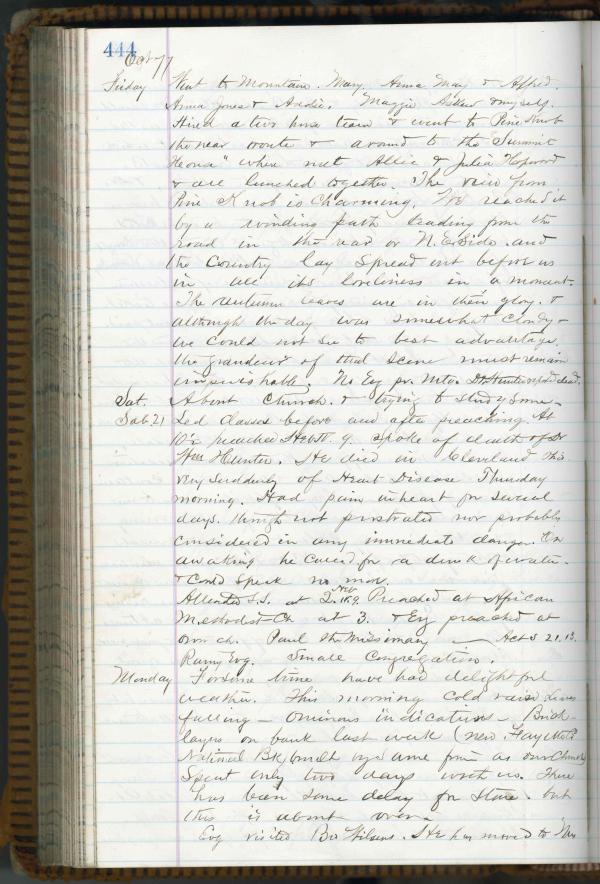 444
Oct 77
Friday Went to Mountain. Mary, Anna May & Alfred.
Anna Jones & Maggie & myself.
Hired a two horse team & went to Pine Knob
the near route & around to the "Summit
House" where met Allie & Julia Hopwood
& all lunched together. The view from
Pine Knob is charming. We reached it
by a winding path leading from the
road in the rear or N.E. Side. and
the Country lay spread out before us
in all its loveliness in a moment.
The autumn leaves are in their glory. &
although the day was somewhat cloudy &
we could not see to best advantage.
the grandeur of that scene must remain
imperishable. No Evg pr. Mtg. Dr Hunter dead.
Sat. About Church. & trying to study Some.
Sab. 21 Led Classes before and after preaching. At
10½ preached Heb 9. spoke of death of Dr
Wm Hunter. He died in Cleveland this
very suddenly of Heart Disease Thursday
morning. Had pain in heart for several
days. though not prostrated nor probably
considered in any immediate danger. On
awaking he for a drink of water.
& could speak no more.
Attended S.S. at 2. Preached at African
Methodist Ch at 3. & Evg preached at
own ch. Paul the Missionary — Acts 21.13.
Rainy Evg. Small Congregation.
Monday For some time have had delightful
weather. This morning cold rain
falling — Ominous indications — Brick
layers on bank last week (new Fayette Co
National Bk) built by same firm as our Church
Spent only two days with us. There
has been some delay for stone. but
this is about over.
Evg visited Bro Wilsons. He has moved to Mrs